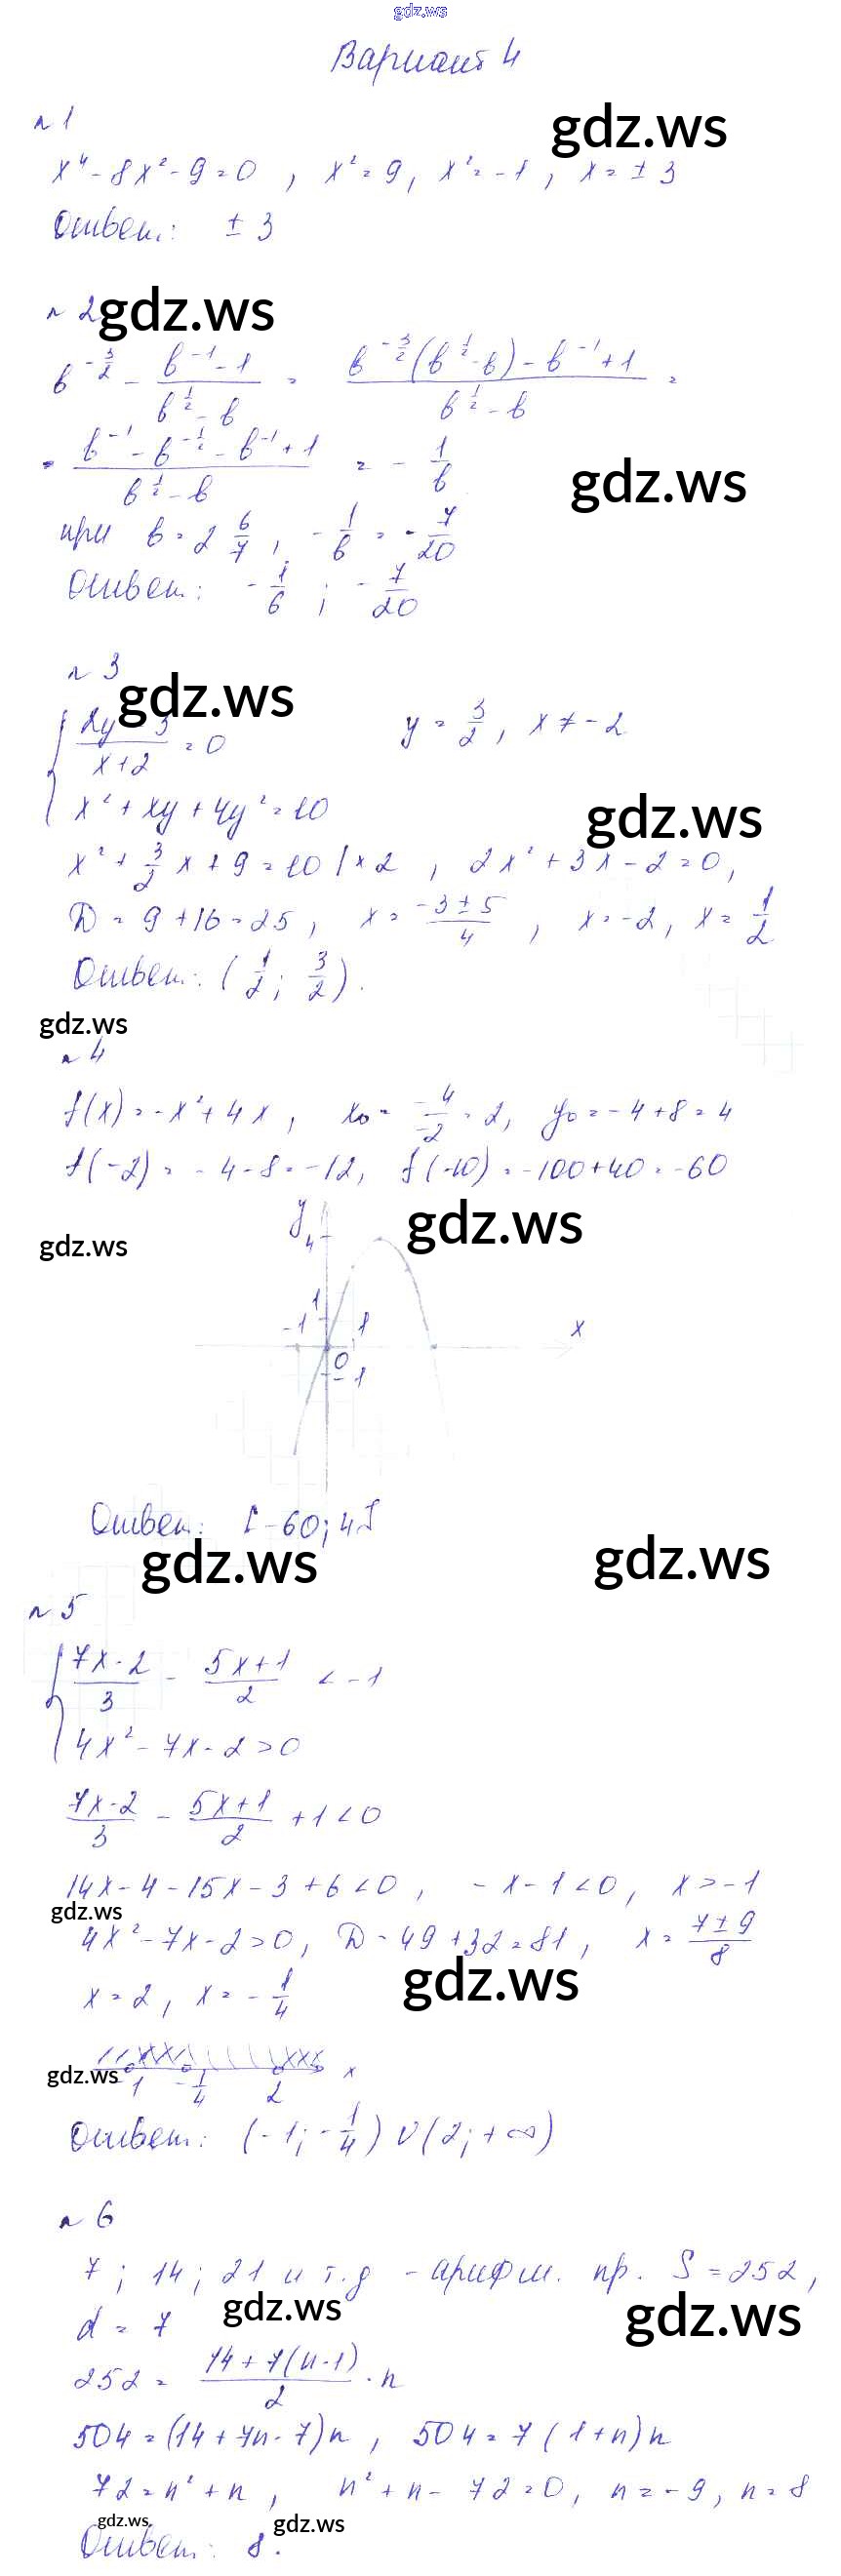 gdz.ws
Вариант 4
n 1
gdz.ws
x⁴ - 8x² - 9 = 0 , x² = 9, x² = -1 , x = ± 3
Ответ: ± 3
n 2
gdz.ws
b^(-3/2) - (b^(-1) - 1)/(b^(1/2) - b) = (b^(-3/2)(b^(1/2) - b) - b^(-1) + 1)/(b^(1/2) - b) =
= (b^(-1) - b^(-1/2) - b^(-1) + 1)/(b^(1/2) - b) = - 1/b
gdz.ws
при b = 2 6/7 , - 1/b = - 7/20
Ответ: - 1/6 ; - 7/20
n 3
gdz.ws
{ (2y - 3)/(x+2) = 0 y = 3/2 , x ≠ -2
x² + xy + 4y² = 10
gdz.ws
x² + 3/2 x + 9 = 10 | × 2 , 2x² + 3x - 2 = 0 ,
D = 9 + 16 = 25 , x = (-3 ± 5)/4 , x = -2 , x = 1/2
Ответ: ( 1/2 ; 3/2 ) .
gdz.ws
n 4
f(x) = -x² + 4x , x₀ = -4/-2 = 2, y₀ = -4 + 8 = 4
f(-2) = -4 - 8 = -12, f(-10) = -100 + 40 = -60
gdz.ws
gdz.ws
y
4
1
-1 1 x
0
-1
Ответ: [-60; 4]
gdz.ws
gdz.ws
n 5
{ (7x - 2)/3 - (5x + 1)/2 < -1
4x² - 7x - 2 > 0
(7x - 2)/3 - (5x + 1)/2 + 1 < 0
14x - 4 - 15x - 3 + 6 < 0 , - x - 1 < 0, x > -1
gdz.ws
4x² - 7x - 2 > 0, D = 49 + 32 = 81 , x = (7 ± 9)/8
gdz.ws
x = 2 , x = - 1/4
gdz.ws
-1 -1/4 2 x
Ответ: (-1; - 1/4) ∪ (2; +∞)
n 6
7 ; 14 ; 21 и т.д - арифм. пр. S = 252 ,
gdz.ws
gdz.ws
d = 7
252 = (14 + 7(n-1))/2 · n
504 = (14 + 7n - 7)n , 504 = 7 (1 + n) n
72 = n² + n , n² + n - 72 = 0, n = -9, n = 8
gdz.ws
gdz.ws
Ответ: 8 .